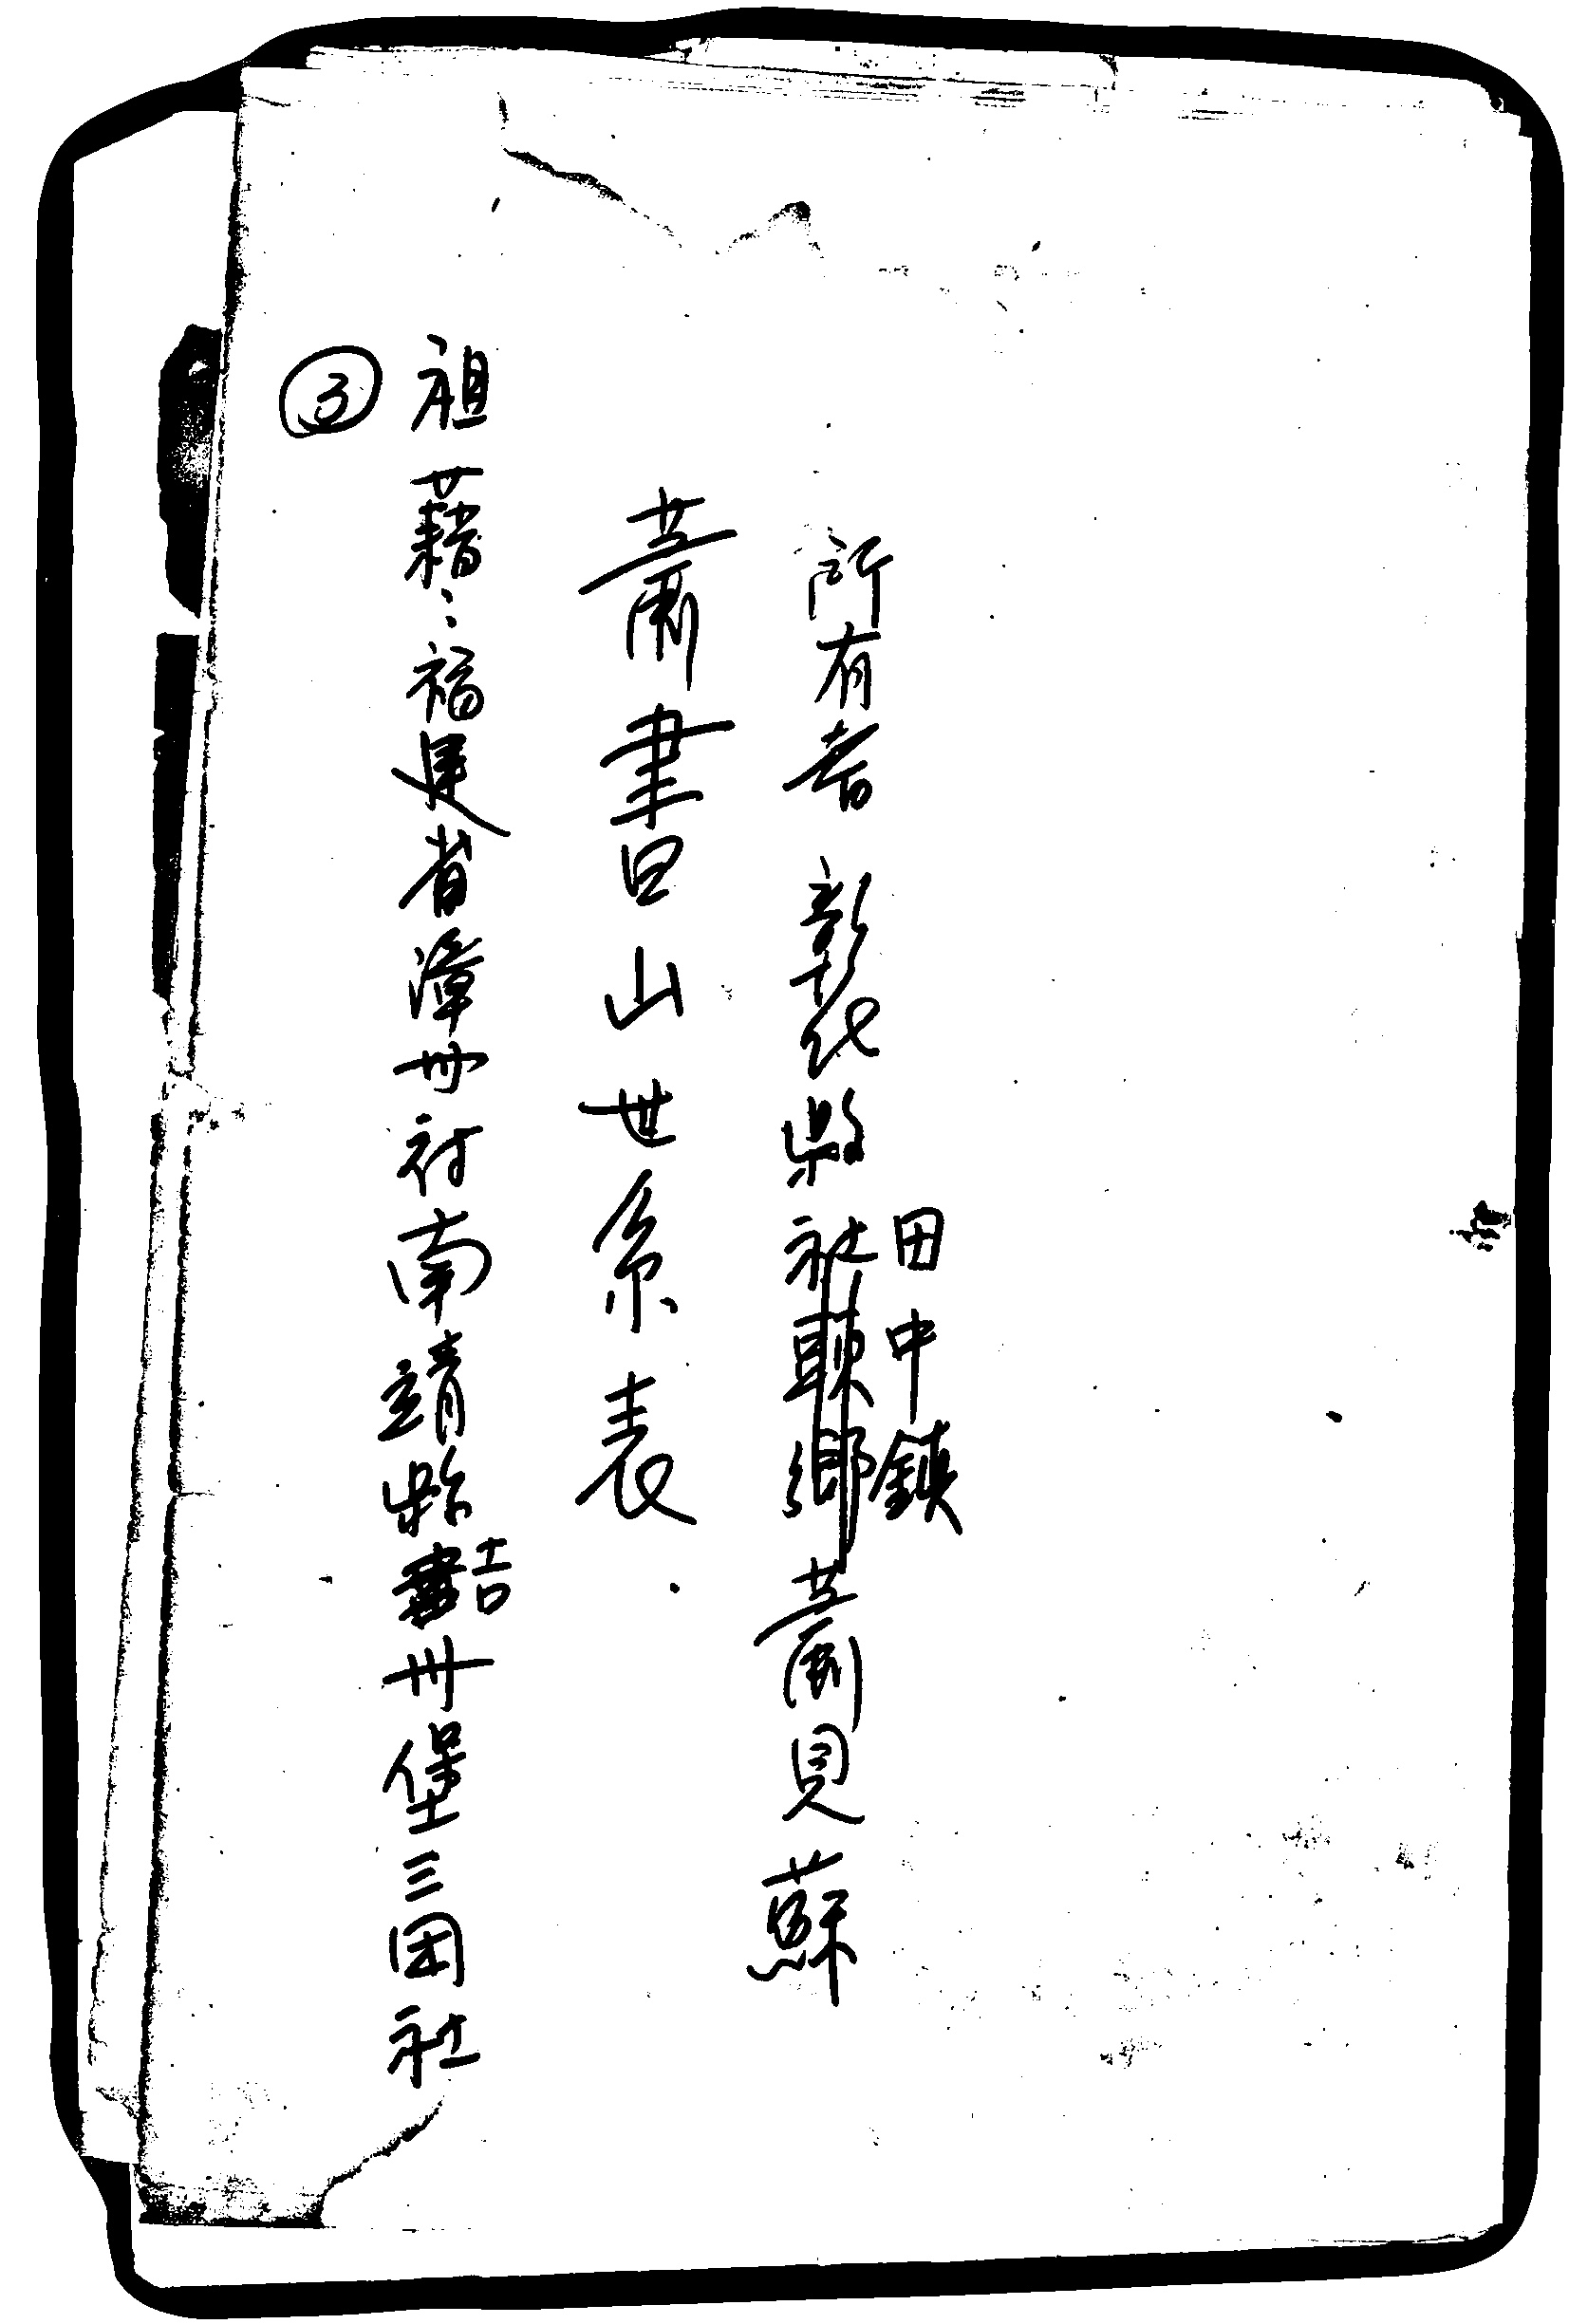 所有者 彰化縣田中鎮蕭見蘇
蕭書山世系表
祖藉:福建省漳州府南靖縣吉州堡三团社
③